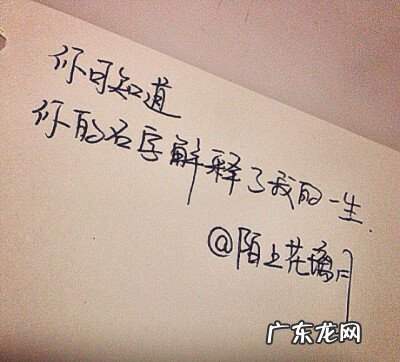 你可知道
你的名字解释了我的一生.
@陌上花璃
广东龙网